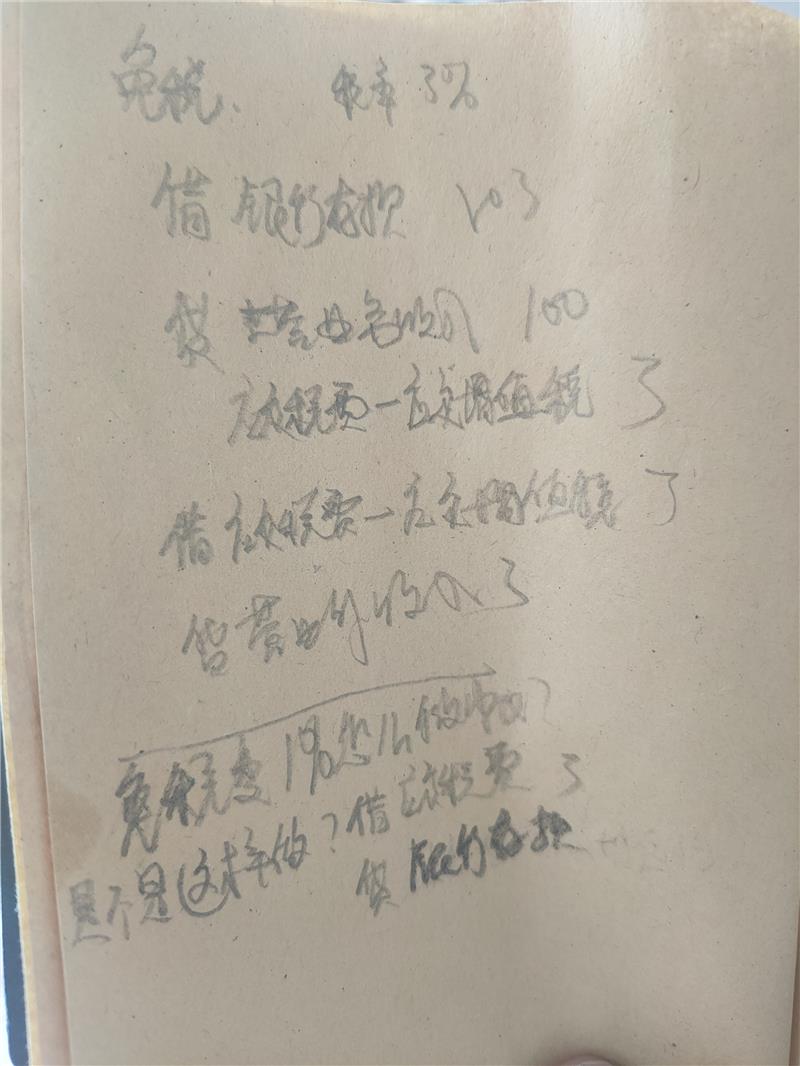 免税、 税率3%
借 银行存款 103
贷 主营业务收入 100
应交税费一应交增值税 3
借 应交税费一应交增值税 3
贷 营业外收入 3
免税变1%怎么做账?
是不是这样做?借 应交税费 3
贷 银行存款